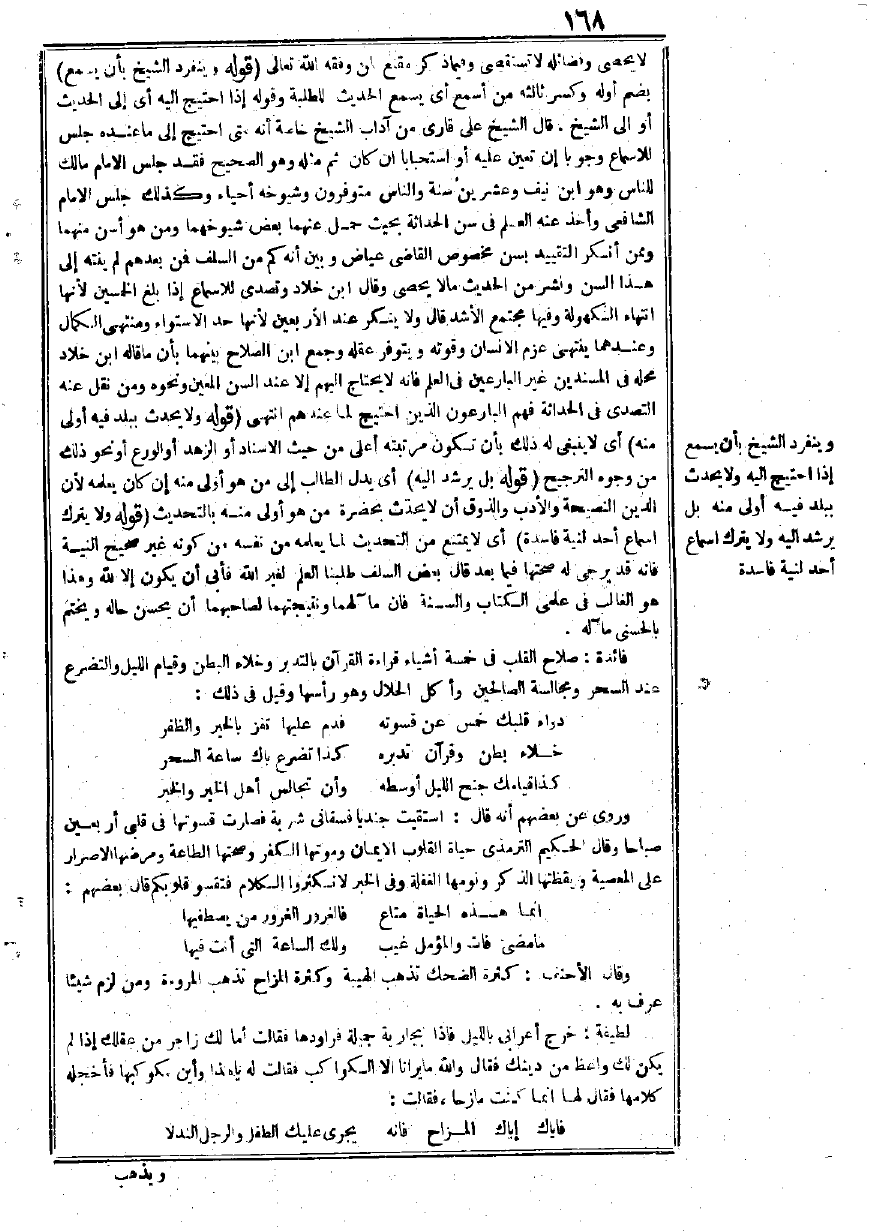 ١٦٨
لا يحصى وفضائله لا تستقصى وفيما ذكر مقنع ان وفقه الله تعالى (قوله وينفرد الشيخ بأن يسمع)
بضم أوله وكسر ثالثه من أسمع أى يسمع الحديث للطلبة وقوله إذا احتيج اليه أى إلى الحديث
أو الى الشيخ . قال الشيخ على قارى من آداب الشيخ خاصة أنه متى احتيج إلى ما عنده جلس
للاسماع وجوبا إن تعين عليه أو استحبابا ان كان ثم مثله وهو الصحيح فقد جلس الامام مالك
للناس وهو ابن نيف وعشرين سنة والناس متوفرون وشيوخه أحياء وكذلك جلس الامام
الشافعى وأخذ عنه العلم فى سن الحداثة بحيث حمل عنهما بعض شيوخهما ومن هو أسن منهما
وممن أنكر التقييد بسن مخصوص القاضى عياض وبين أنه كم من السلف فمن بعدهم لم يفته إلى
هذا السن ونشر من الحديث مالا يحصى وقال ابن خلاد وتصدى للاسماع إذا بلغ الخمسين لأنها
انتهاء الكهولة وفيها مجتمع الأشد قال ولا ينكر عند الأربعين لأنها حد الاستواء ومنتهى الكمال
وعندهما ينتهى عزم الانسان وقوته ويتوفر عقله وجمع ابن الصلاح بينهما بأن ماقاله ابن خلاد
محله فى المسندين غير البارعين فى العلم فانه لايحتاج اليهم إلا عند السن المعين ونحوه ومن نقل عنه
التصدى فى الحداثة فهم البارعون الذين احتيج لما عندهم انتهى (قوله ولا يحدث ببلد فيه أولى
منه) أى لاينبغى له ذلك بأن تكون مرتبته أعلى من حيث الاسناد أو الزهد أوالورع أونحو ذلك
من وجوه الترجيح (قوله بل يرشد اليه) أى يدل الطالب إلى من هو أولى منه إن كان يعلمه لأن
الدين النصيحة والأدب والذوق أن لايحدث بحضرة من هو أولى منه بالتحديث (قوله ولا يترك
اسماع أحد لنية فاسدة) أى لا يمتنع من التحديث لما يعلمه من نفسه من كونه غير صحيح النية
فانه قد يرجى له صحتها فيما بعد قال بعض السلف طلبنا العلم لغير الله فأبى أن يكون إلا لله وهذا
هو الغالب فى علمى الكتاب والسنة فان مآلهما ونتيجتهما لصاحبهما أن يحسن حاله ويختم
بالحسنى مآله .
وينفرد الشيخ بأن يسمع
إذا احتيج اليه ولا يحدث
ببلد فيه أولى منه بل
يرشد اليه ولا يترك اسماع
أحد لنية فاسدة
فائدة : صلاح القلب فى خمسة أشياء قراءة القرآن بالتدبر وخلاء البطن وقيام الليل والتضرع
عند السحر ومجالسة الصالحين وأكل الحلال وهو رأسها وقيل فى ذلك :
دواء قلبك خمس عن قسوته فدم عليها تفز بالخير والظفر
خلاء بطن وقرآن تدبره كذا تضرع باك ساعة السحر
كذا قيامك جنح الليل أوسطه وأن تجالس أهل الخير والخبر
وروى عن بعضهم أنه قال : استقيت جنديا فسقانى شربة فصارت قسوتها فى قلبى أربعين
صباحا وقال الحكيم الترمذى حياة القلوب الايمان وموتها الكفر وصحتها الطاعة ومرضها الاصرار
على المعصية ويقظتها الذكر ونومها الغفلة وفى الخبر لا تكثروا الكلام فتقسو قلوبكم قال بعضهم :
انما هذه الحياة متاع فالغرور الغرور من يصطفيها
مامضى فات والمؤمل غيب ولك الساعة التى أنت فيها
وقال الأحنف : كثرة الضحك تذهب الهيبة وكثرة المزاح تذهب المروءة ومن لزم شيئا
عرف به .
لطيفة : خرج أعرابى بالليل فاذا بجارية جميلة فراودها فقالت أما لك زاجر من عقلك إذا لم
يكن لك واعظ من دينك فقال والله مايرانا الا الكواكب فقالت له ياهذا وأين مكوكبها فأخجله
كلامها فقال لها انما كنت مازحا ، فقالت :
فاياك إياك المزاح فانه يجرى عليك الطفل والرجل النذلا
ويذهب